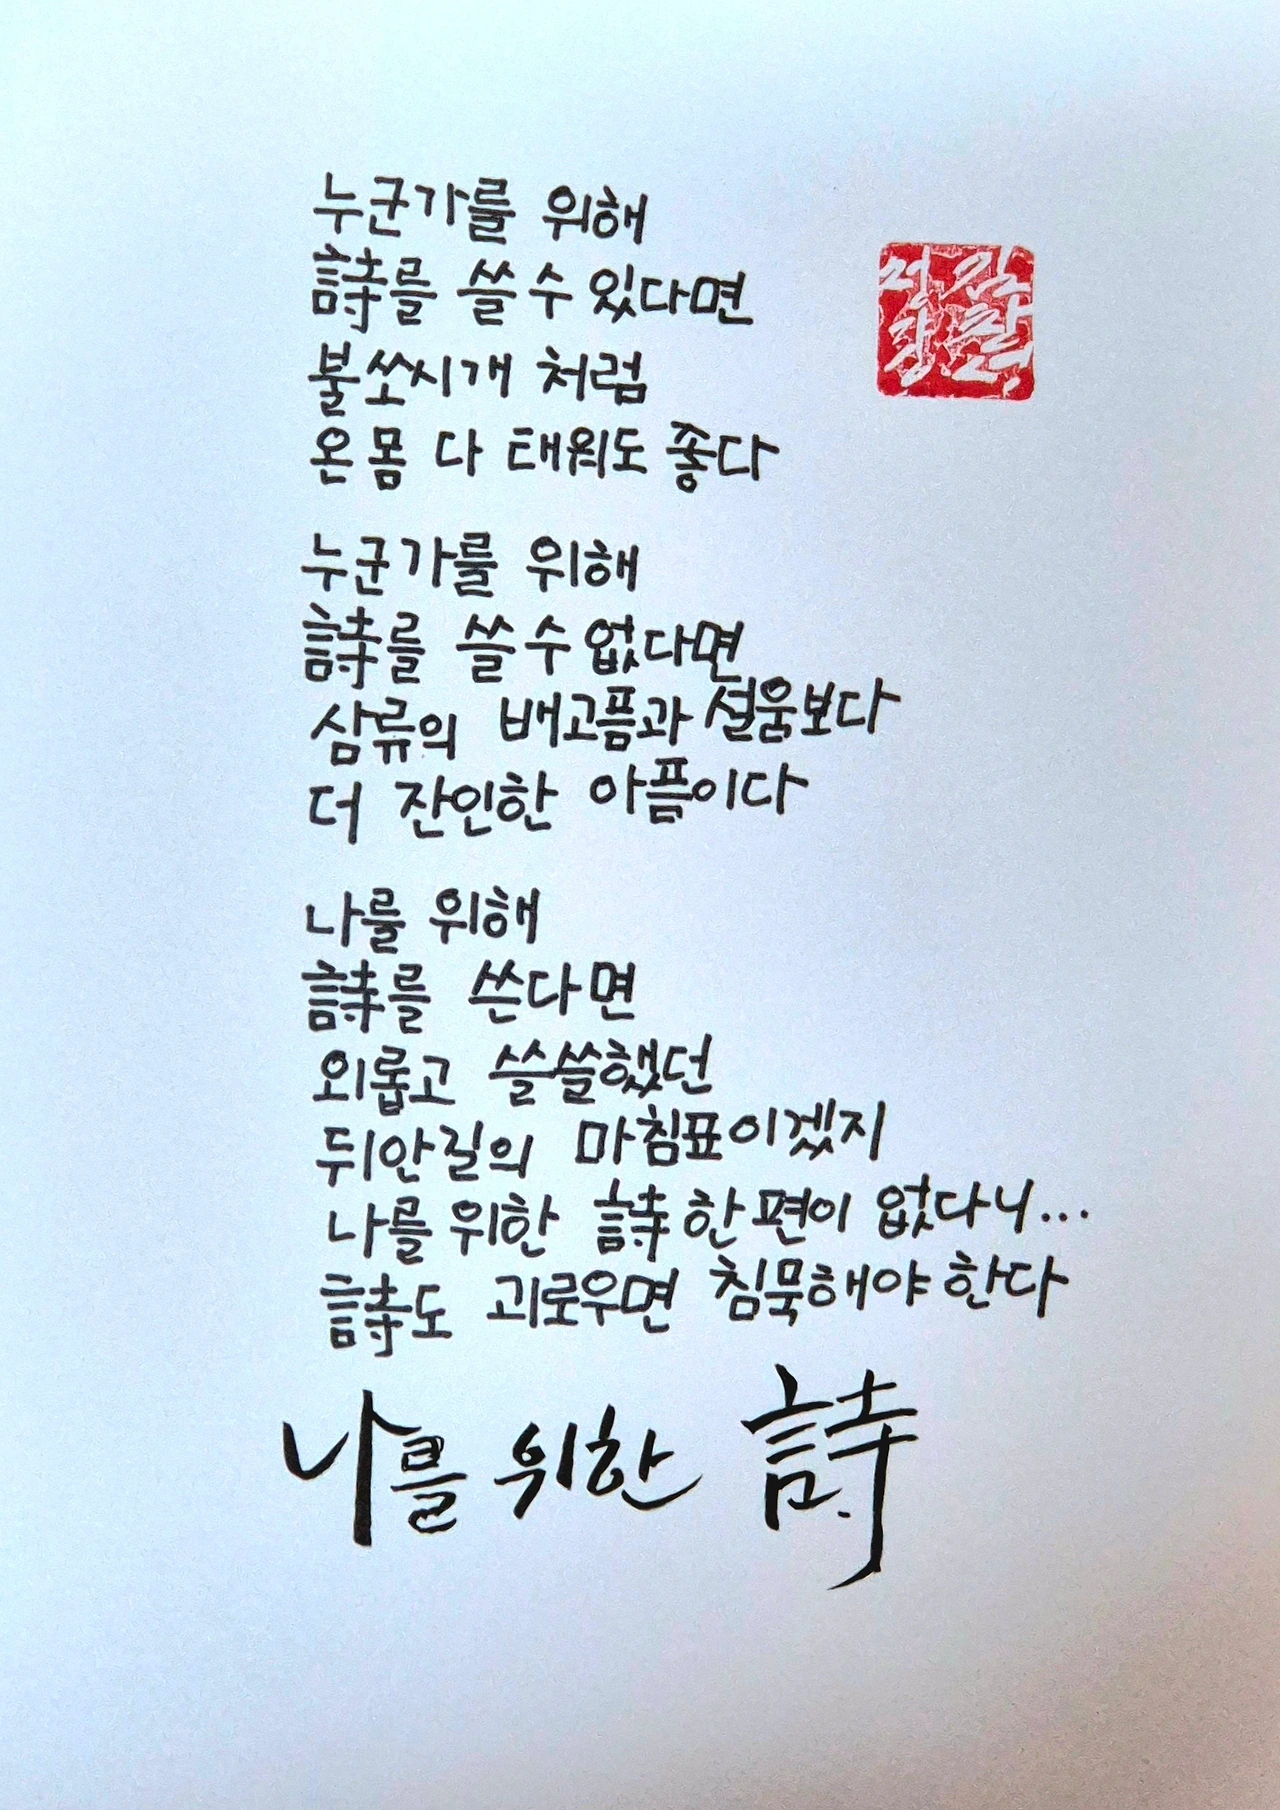 누군가를 위해
詩를 쓸 수 있다면
불쏘시개 처럼
온 몸 다 태워도 좋다
누군가를 위해
詩를 쓸 수 없다면
삼류의 배고픔과 설움보다
더 잔인한 아픔이다
나를 위해
詩를 쓴다면
외롭고 쓸쓸했던
뒤안길의 마침표이겠지
나를 위한 詩 한 편이 없다니...
詩도 괴로우면 침묵해야 한다
나를 위한 詩